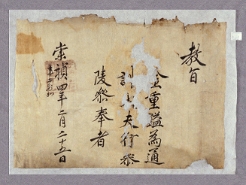 教旨
金重鎰為通
訓夫行
陵參奉者
崇禎四年二月二十五日